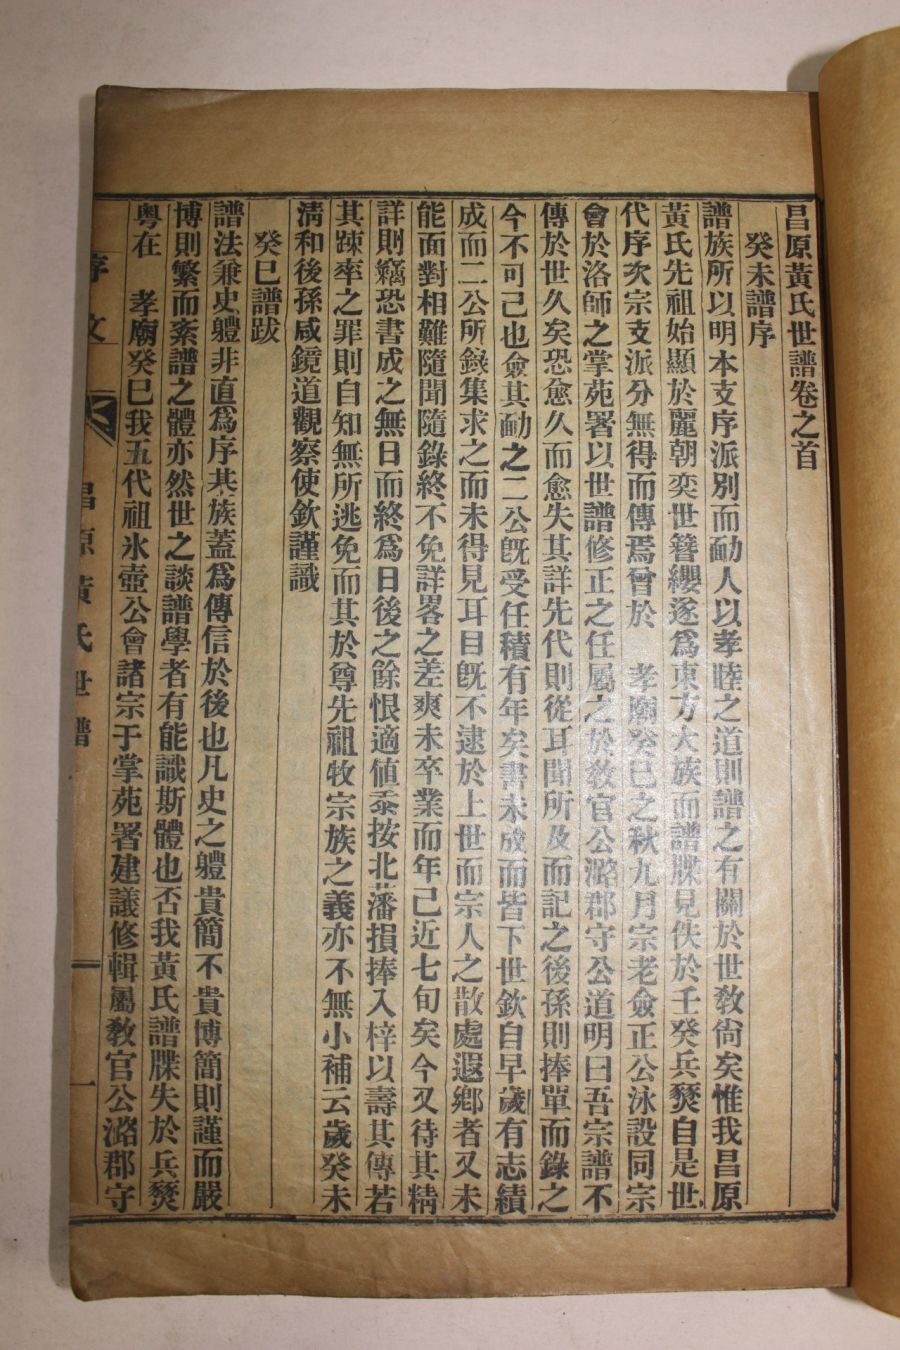 昌原黃氏世譜卷之首
癸未譜序
譜族所以明本支序派別而勸人以孝睦之道則譜之有關於世敎尙矣惟我昌原
黃氏先祖始顯於麗朝奕世簪纓遂爲東方大族而譜牒見佚於壬癸兵燹自是世
代序次宗支派分無得而傳焉曾於　孝廟癸巳之秋九月宗老僉正公泳設同宗
會於洛師之掌苑署以世譜修正之任屬之於敎官公潞郡守公道明曰吾宗譜不
傳於世久矣恐愈久而愈失其詳先代則從耳聞所及而記之後孫則捧單而錄之
今不可已也僉其勸之二公旣受任積有年矣書未成而皆下世欽自早歲有志績
成而二公所錄集求之而未得見耳目旣不逮於上世而宗人之散處遐鄕者又未
能面對相難隨聞隨錄終不免詳畧之差爽未卒業而年已近七旬矣今又待其精
詳則竊恐書成之無日而終爲日後之餘恨適値忝按北藩損捧入梓以壽其傳若
其踈率之罪則自知無所逃免而其於尊先祖牧宗族之義亦不無小補云歲癸未
淸和後孫咸鏡道觀察使欽謹識
癸巳譜跋
譜法兼史軆非直爲序其族蓋爲傳信於後也凡史之軆貴簡不貴博簡則謹而嚴
博則繁而紊譜之體亦然世之談譜學者有能識斯體也否我黃氏譜牒失於兵燹
粤在　孝廟癸巳我五代祖氷壺公會諸宗于掌苑署建議修輯屬敎官公潞郡守
序文
昌原黃氏世譜
一